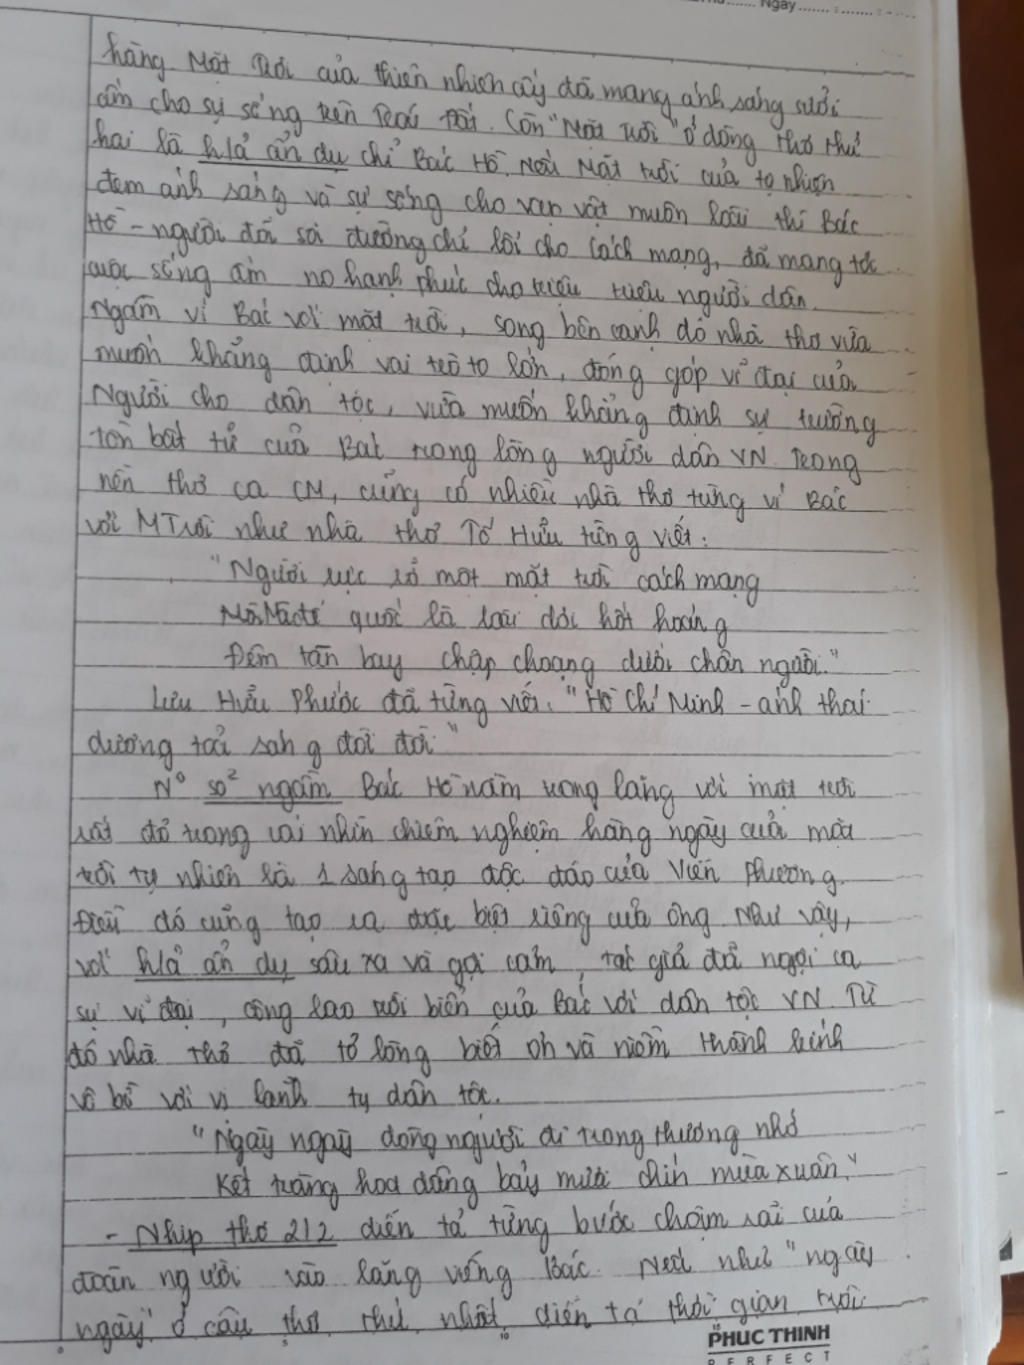 Ngày
hằng Mặt Trời của thiên nhiên ấy đã mang ánh sáng sưởi
ấm cho sự sống trên Trái Đất. Còn "Mặt trời" ở dòng thơ thứ
hai là h/ả ẩn dụ chỉ Bác Hồ. Nếu Mặt trời của tự nhiên
đem ánh sáng và sự sống cho vạn vật muôn loài thì Bác
Hồ - người đã soi đường chỉ lối cho Cách mạng, đã mang tới
cuộc sống ấm no hạnh phúc cho triệu triệu người dân.
Ngầm ví Bác với mặt trời, song bên cạnh đó nhà thơ vừa
muốn khẳng định vai trò to lớn, đóng góp vĩ đại của
Người cho dân tộc, vừa muốn khẳng định sự trường
tồn bất tử của Bác trong lòng người dân VN. Trong
nền thơ ca CM, cũng có nhiều nhà thơ từng ví Bác
với MTrời như nhà thơ Tố Hữu từng viết:
"Người rực rỡ một mặt trời cách mạng
Mà đế quốc là loài dơi hốt hoảng
Đêm tàn bay chập choạng dưới chân người."
Lưu Hữu Phước đã từng viết: "Hồ Chí Minh - ánh thái
dương tỏa sáng đời đời"
N° so² ngầm Bác Hồ nằm trong lăng với mặt trời
rất đỏ trong cái nhìn chiêm nghiệm hằng ngày của mặt
trời tự nhiên là 1 sáng tạo độc đáo của Viễn Phương.
Điều đó cũng tạo ra đặc biệt riêng của ông. Như vậy,
với h/ả ẩn dụ sâu xa và gợi cảm, tác giả đã ngợi ca
sự vĩ đại, công lao trời biển của Bác với dân tộc VN. Từ
đó nhà thơ đã tỏ lòng biết ơn và niềm thành kính
vô bờ với vị lãnh tụ dân tộc.
"Ngày ngày dòng người đi trong thương nhớ
Kết tràng hoa dâng bảy mươi chín mùa xuân"
- Nhịp thơ 2/2 diễn tả từng bước chậm rãi của
đoàn người vào lăng viếng Bác. Nếu như "ngày
ngày" ở câu thơ thứ nhất diễn tả thời gian
PHUC THINH
PERFECT